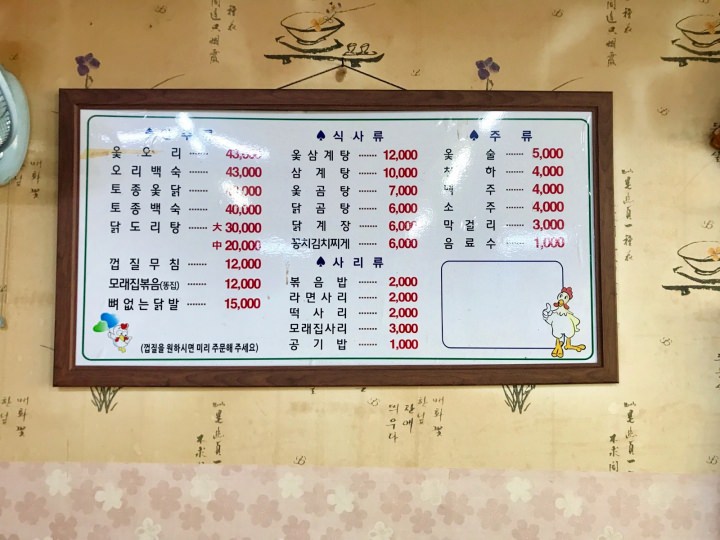 ♠ 안 주 류
옻 오 리 ······ 43,000
오 리 백 숙 ······ 43,000
토 종 옻 닭 ······
토 종 백 숙 ······ 40,000
닭 도 리 탕 ······ 大 30,000
中 20,000
껍 질 무 침 ······ 12,000
모래집볶음(똥집) ······ 12,000
뼈 없 는 닭 발 ······ 15,000
(껍질을 원하시면 미리 주문해 주세요)
♠ 식 사 류
옻 삼 계 탕 ······ 12,000
삼 계 탕 ······ 10,000
옻 곰 탕 ······ 7,000
닭 곰 탕 ······ 6,000
닭 계 장 ······ 6,000
꽁치김치찌게 ······ 6,000
♠ 사 리 류
볶 음 밥 ······ 2,000
라 면 사 리 ······ 2,000
떡 사 리 ······ 2,000
모래집사리 ······ 3,000
공 기 밥 ······ 1,000
♠ 주 류
옻 술 ······ 5,000
청 하 ······ 4,000
맥 주 ······ 4,000
소 주 ······ 4,000
막 걸 리 ······ 3,000
음 료 수 ······ 1,000